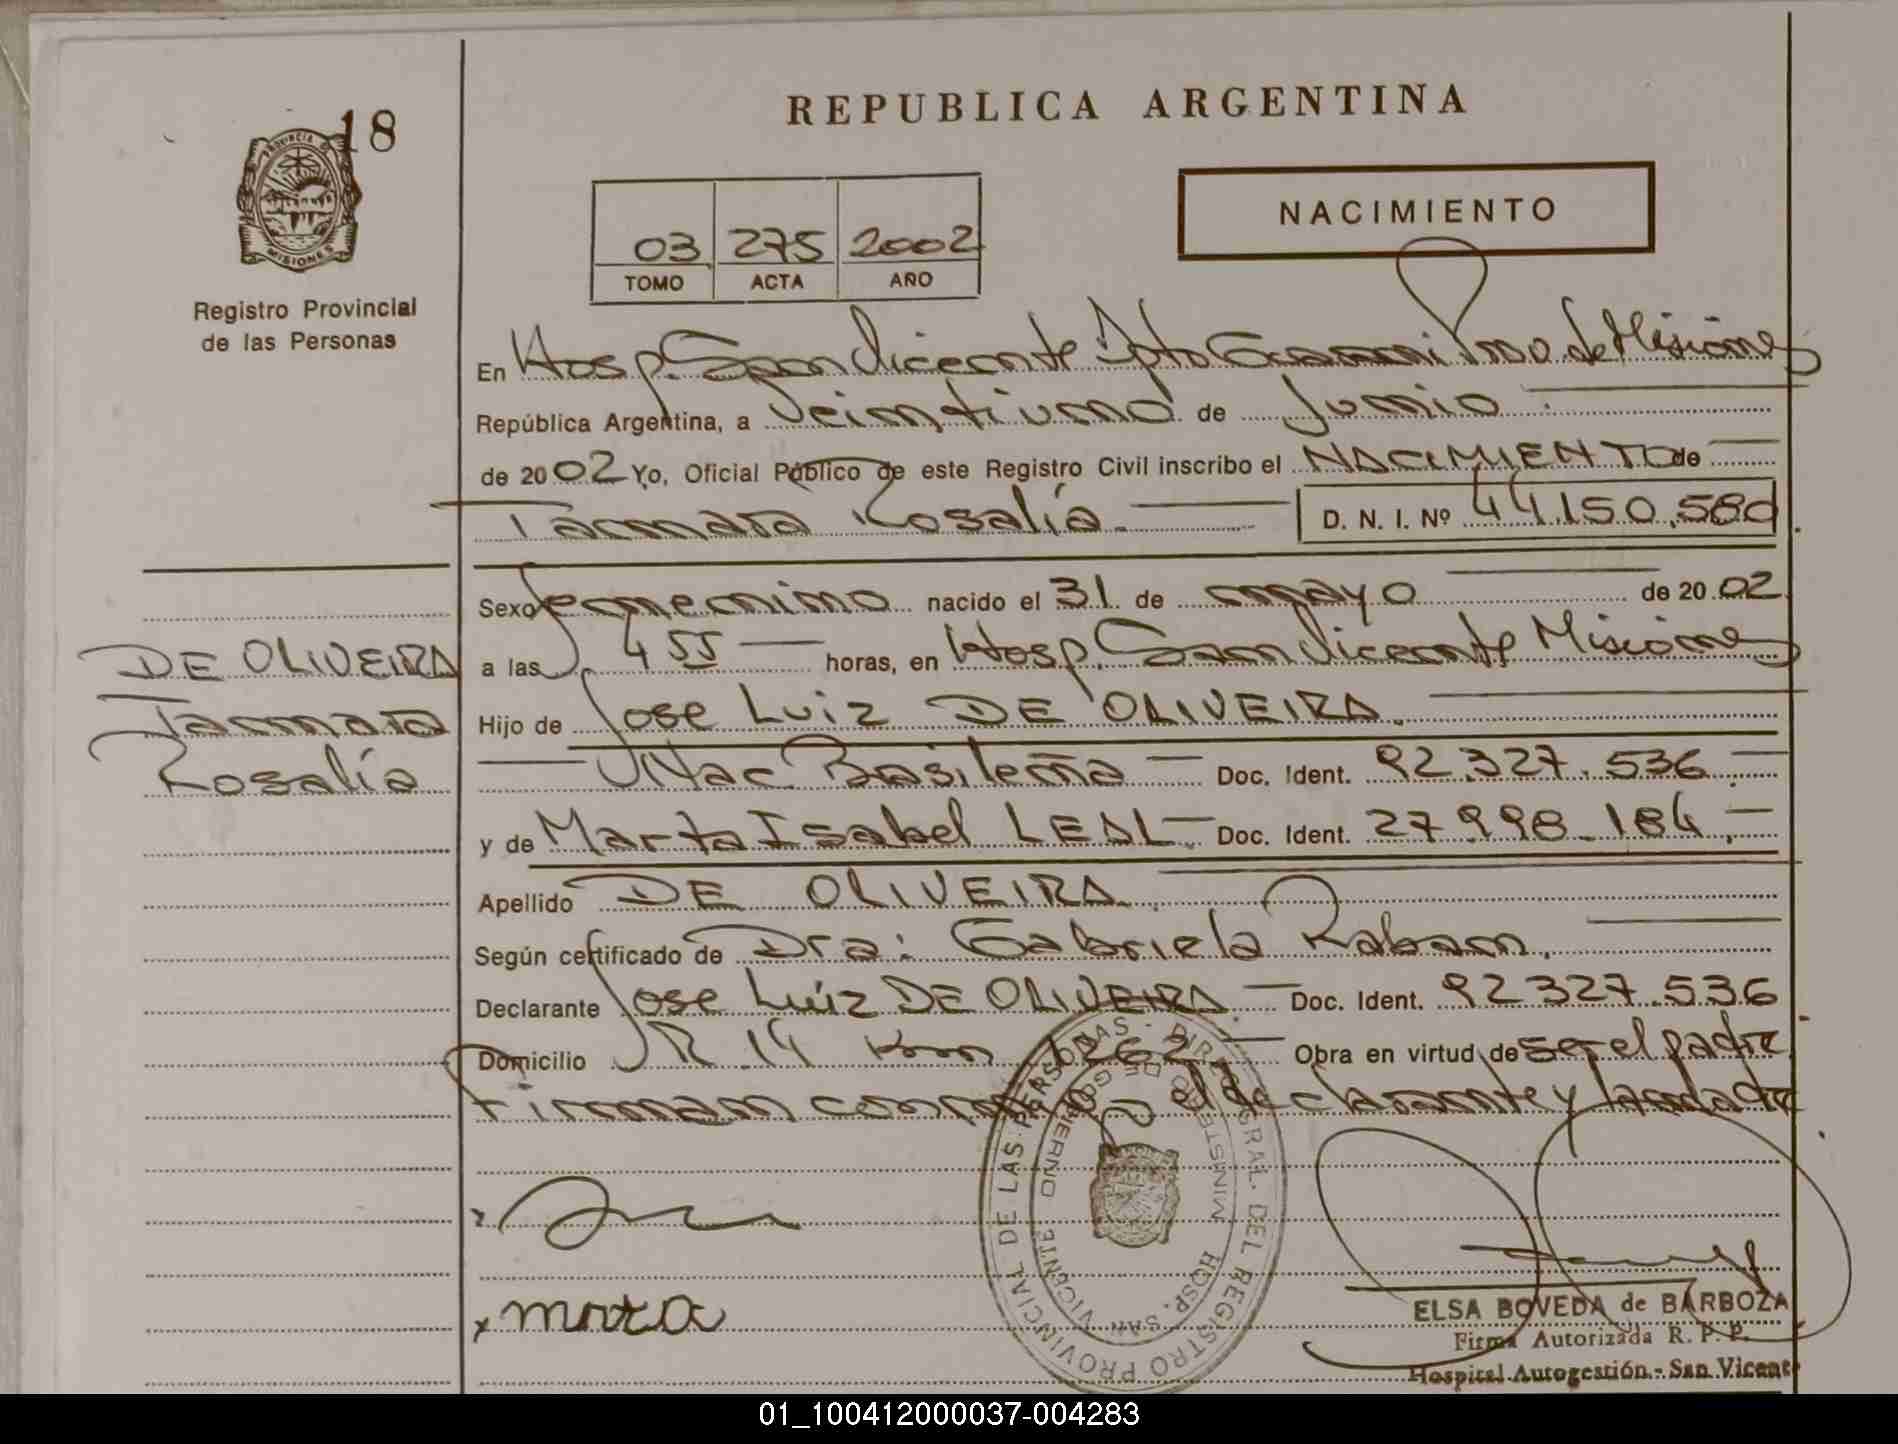 REPUBLICA ARGENTINA
18
PROVINCIA DE
MISIONES
Registro Provincial
de las Personas
03 275 2002
TOMO ACTA AÑO
NACIMIENTO
En Hosp. San Vicente Dpto Guarani Pno. de Misiones
República Argentina, a Veintiuno de Junio
de 2002 Yo, Oficial Público de este Registro Civil inscribo el NACIMIENTO de
Tamara Rosalía. D. N. I. Nº 44.150.580
Sexo femenino nacido el 31 de mayo de 2002
a las 4 55 horas, en Hosp. San Vicente Misiones
DE OLIVEIRA
Tamara
Rosalía
Hijo de Jose Luiz DE OLIVEIRA.
Nac. Basileña Doc. Ident. 92.327.536
y de Marta Isabel LEAL Doc. Ident. 27.998.184
Apellido DE OLIVEIRA
Según certificado de Dra: Gabriela Raban.
Declarante Jose Luiz DE OLIVEIRA Doc. Ident. 92 327.536
Domicilio R. 14 Km 1262 Obra en virtud de ser el padre
Firman conmigo el declarante y la madre
REGISTRO PROVINCIAL DE LAS PERSONAS - DIR. GRAL. DEL
MINISTERIO DE GOBIERNO
HOSP. SAN VICENTE
ELSA BOVEDA de BARBOZA
Firma Autorizada R. P. P.
Hospital Autogestión - San Vicente
01_100412000037-004283